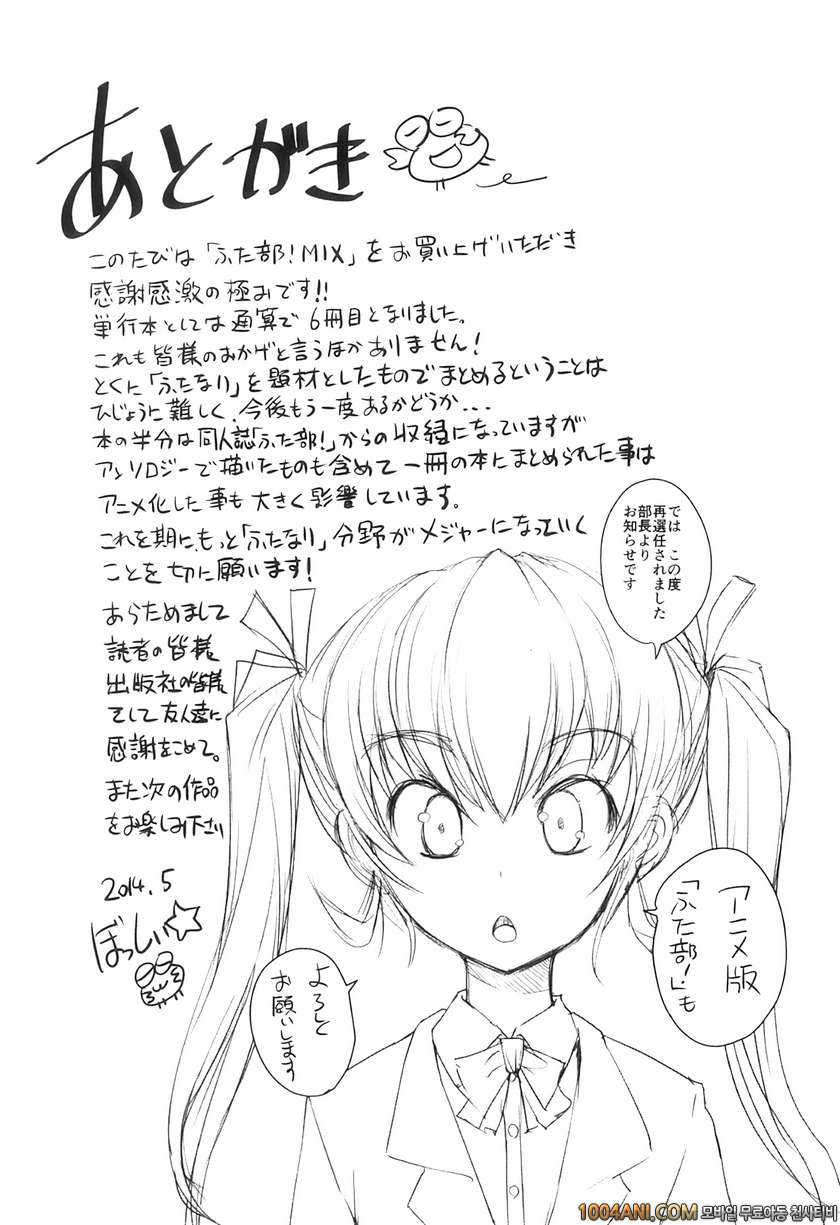 あとがき
このたびは「ふた部!MIX」をお買い上げいただき
感謝感激の極みです!!
単行本としては通算で6冊目となりました。
これも皆様のおかげと言うほかありません!
とくに「ふたなり」を題材としたものでまとめるということは
ひじょうに難しく、今後もう一度あるかどうか...
本の半分は同人誌「ふた部!」からの収録になっていますが
アンソロジーで描いたものも含めて一冊の本にまとめられた事は
アニメ化した事も大きく影響しています。
これを期に、もっと「ふたなり」分野がメジャーになっていく
ことを切に願います!
では この度
再選任されました
部長より
お知らせです
あらためまして
読者の皆様
出版社の皆様
そして友人達に
感謝をこめて。
また次の作品
をお楽しみ下さい
2014.5
ぼっしぃ☆
アニメ版
「ふた部!」も
よろしく
お願いします
1004ANI.COM 모바일 무료야동 천사티비